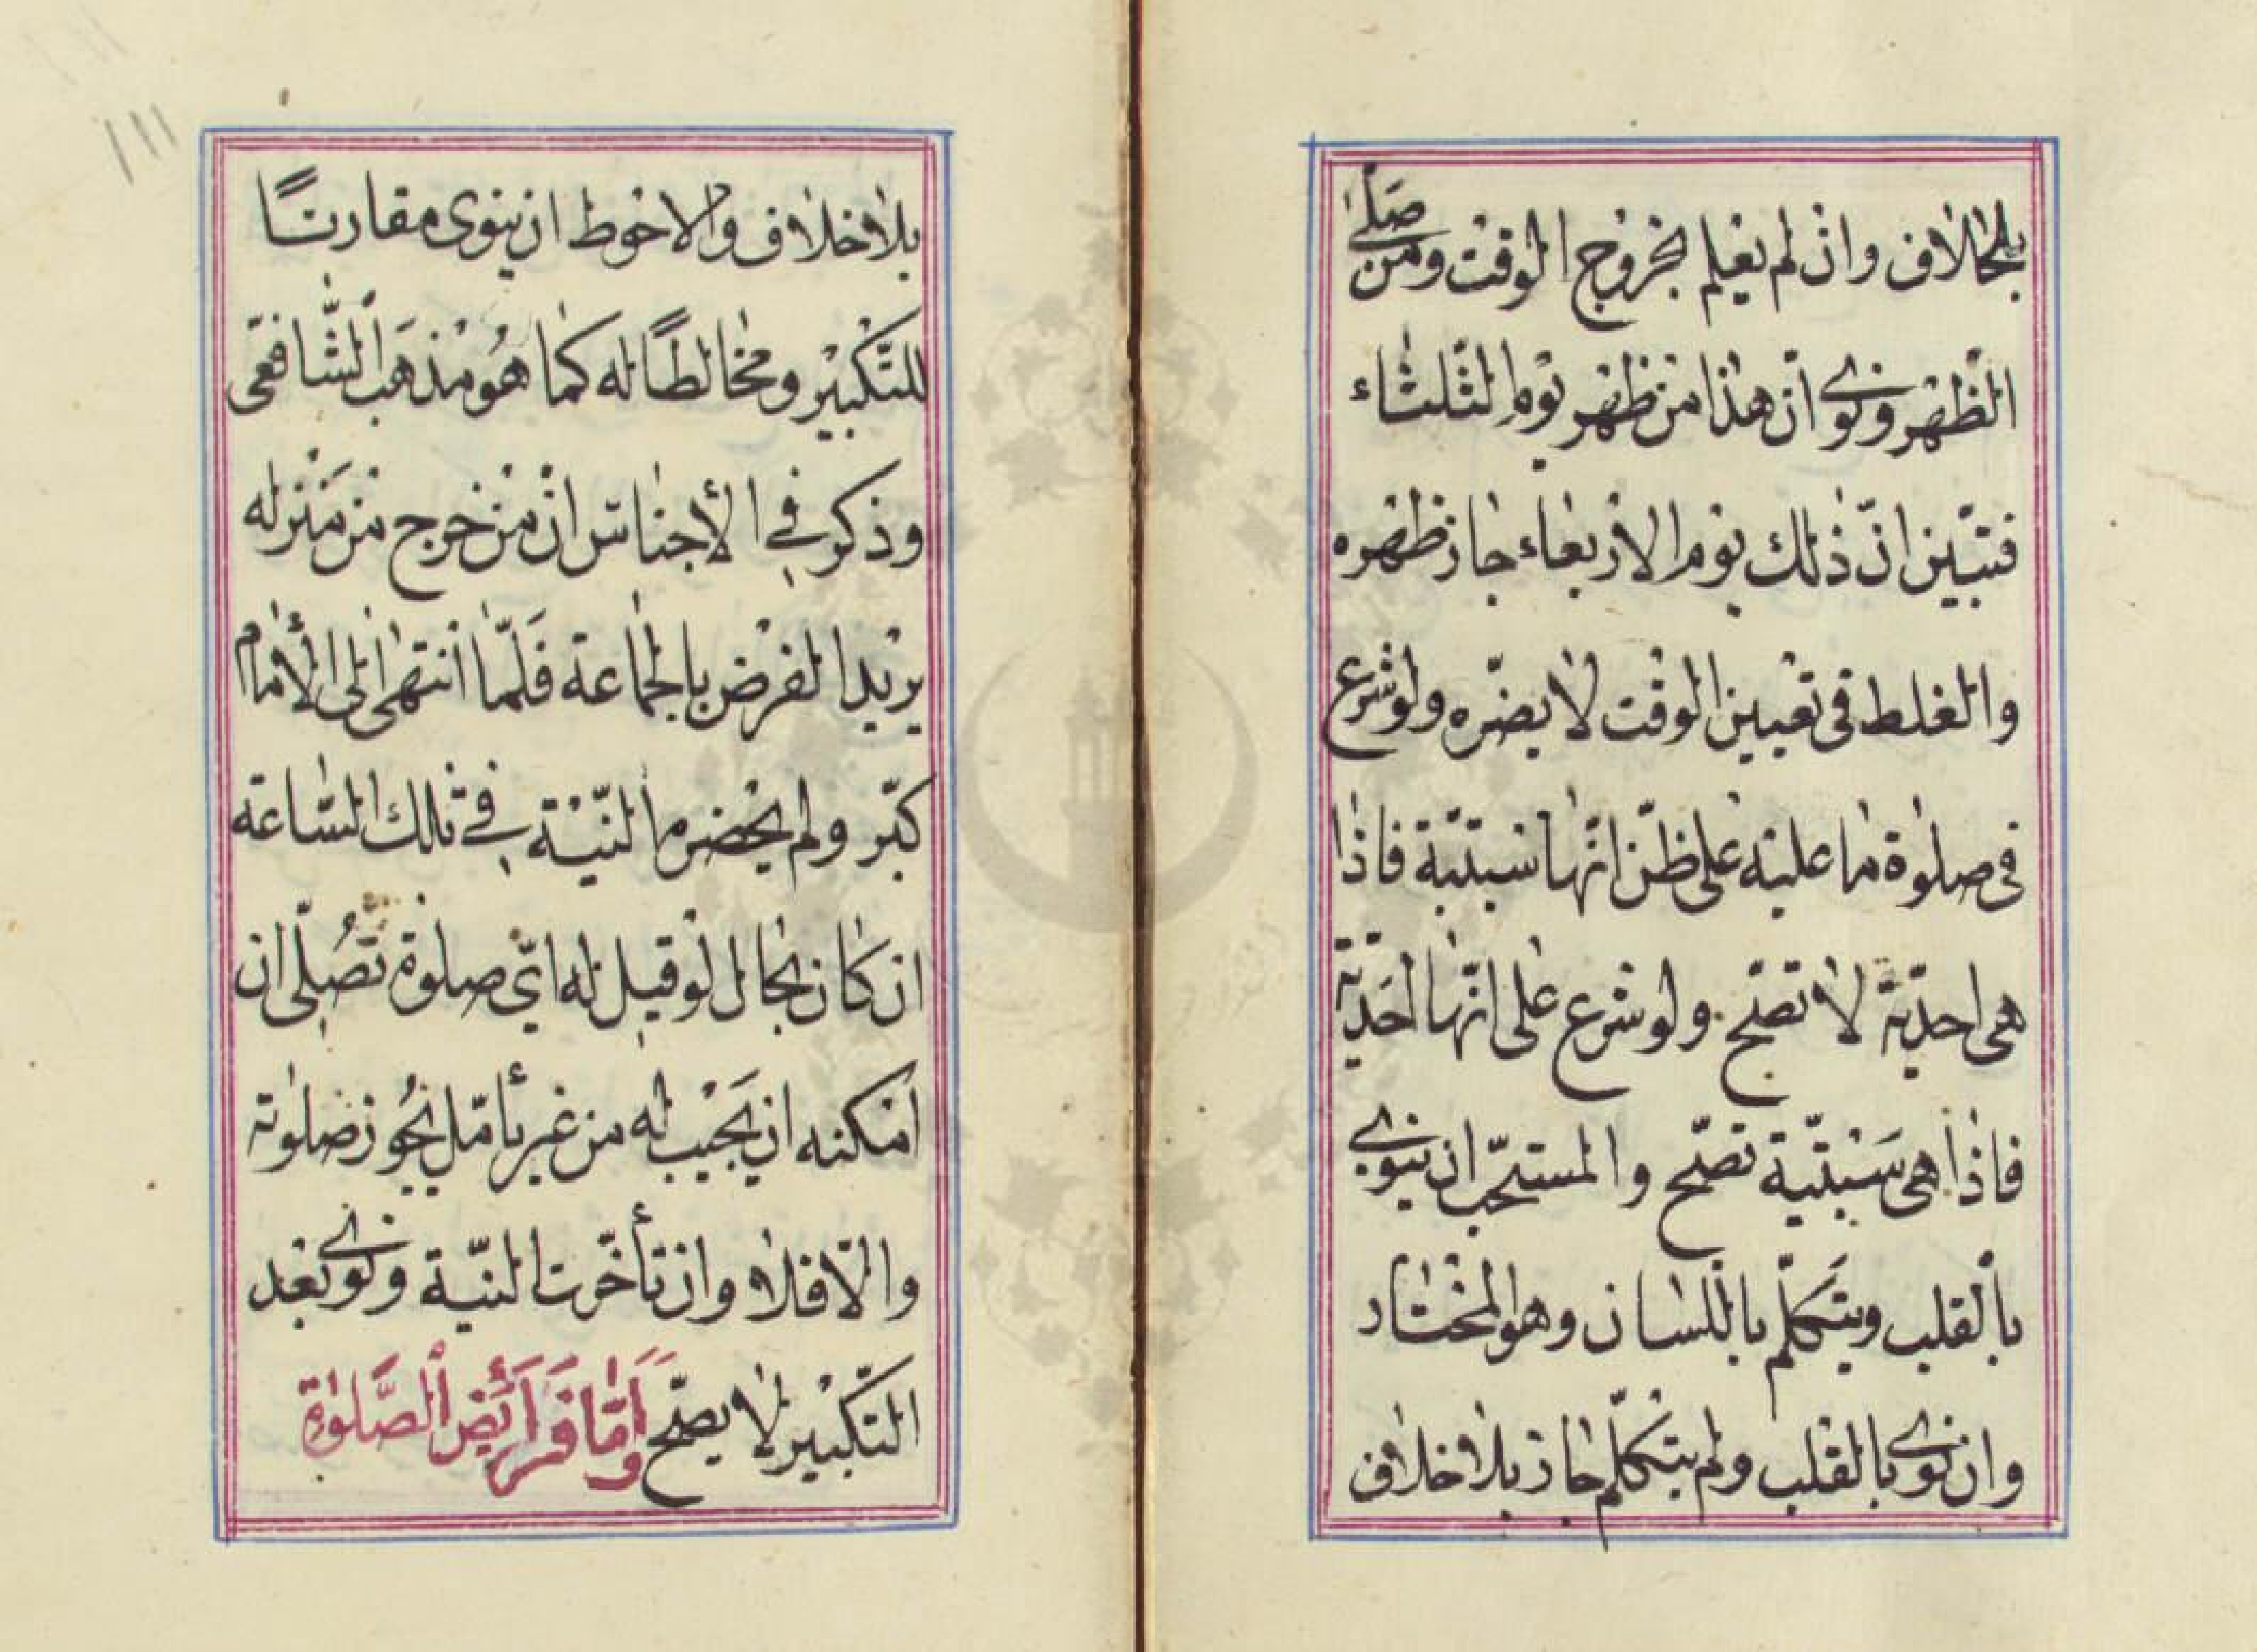 بلخالاف وان لم يعلم بخروج الوقت ومن صلى
الظهر ونوى ان هذا من ظهر يوم الثلثاء
فتبين انّ ذلك يوم الاربعاء جاز ظهره
والغلط فى تعيين الوقت لا يضرّه ولو شرع
فى صلوة ما عليه على ظنّ انّها سبتيّة فاذا
هى احديّة لا تصح ولو شرع على انّها احَديّة
فاذا هى سَبْتيّة تصحّ والمستحبّ ان ينوى
بالقلب ويتكلّم باللسان وهو المختار
وان نوى بالقلب ولم يتكلّم جاز بلا خلاف
بلا خلاف والاحوط ان ينوى مقارنًا
للتّكبير ومخالطًا له كما هُو مذهَب الشّافعى
وذكر في الأجناس ان من خرج من مَنْزله
يريد الفرض بالجماعة فَلمّا انتهى الى الأمام
كبّر ولم يحضره النيّة في تلك السّاعة
ان كان بحال لو قيل له اىّ صلوة تُصلّى ان
امكنه ان يَجيب له من غير تأمّل يجُوز صلوته
والّا فلا وان تأخّرت النيّة ونوى بعد
التّكبير لا يصحّ وَامّا فَرَائِض الصَّلوةِ